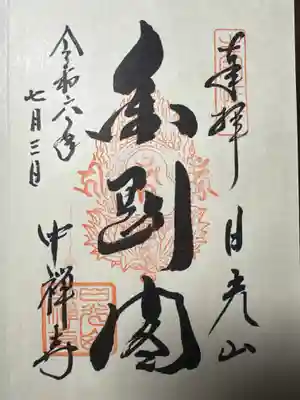 奉拝
日光山
金剛閣
令和六年
七月三日
中禪寺